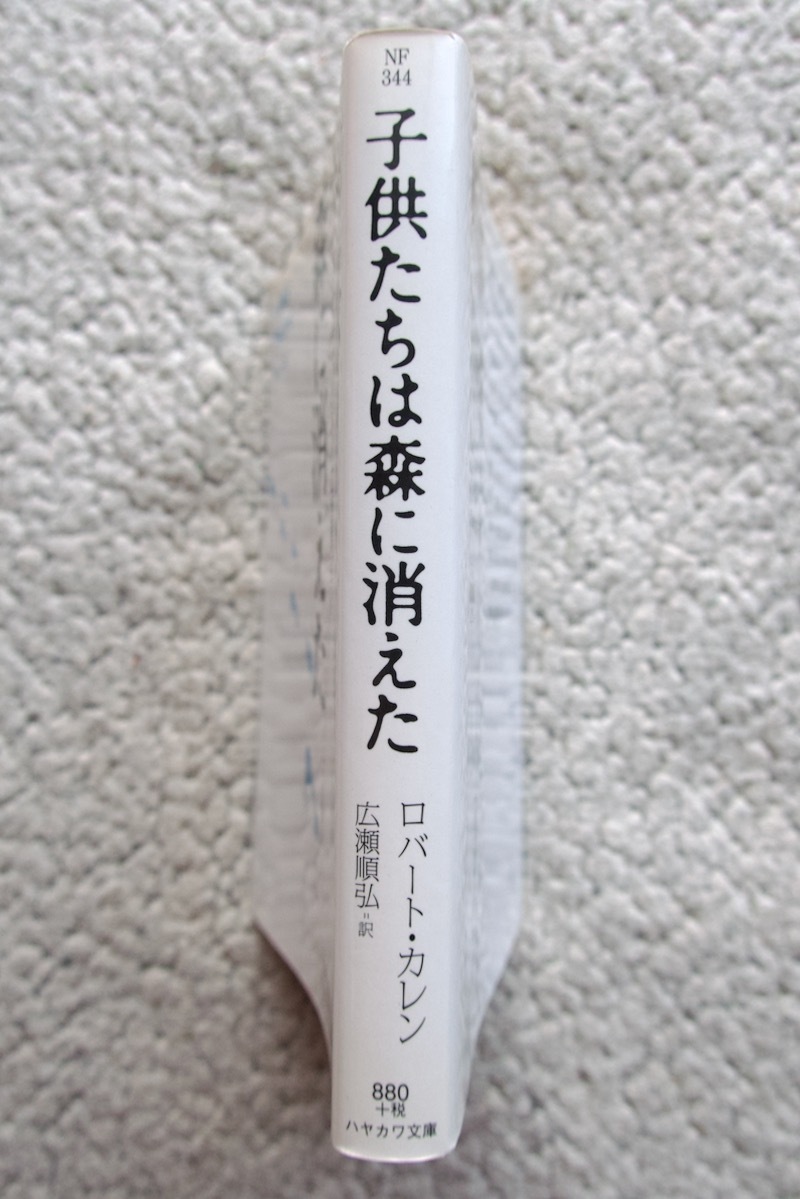 NF
344
子供たちは森に消えた
ロバート・カレン
広瀬順弘=訳
880
+税
ハヤカワ文庫